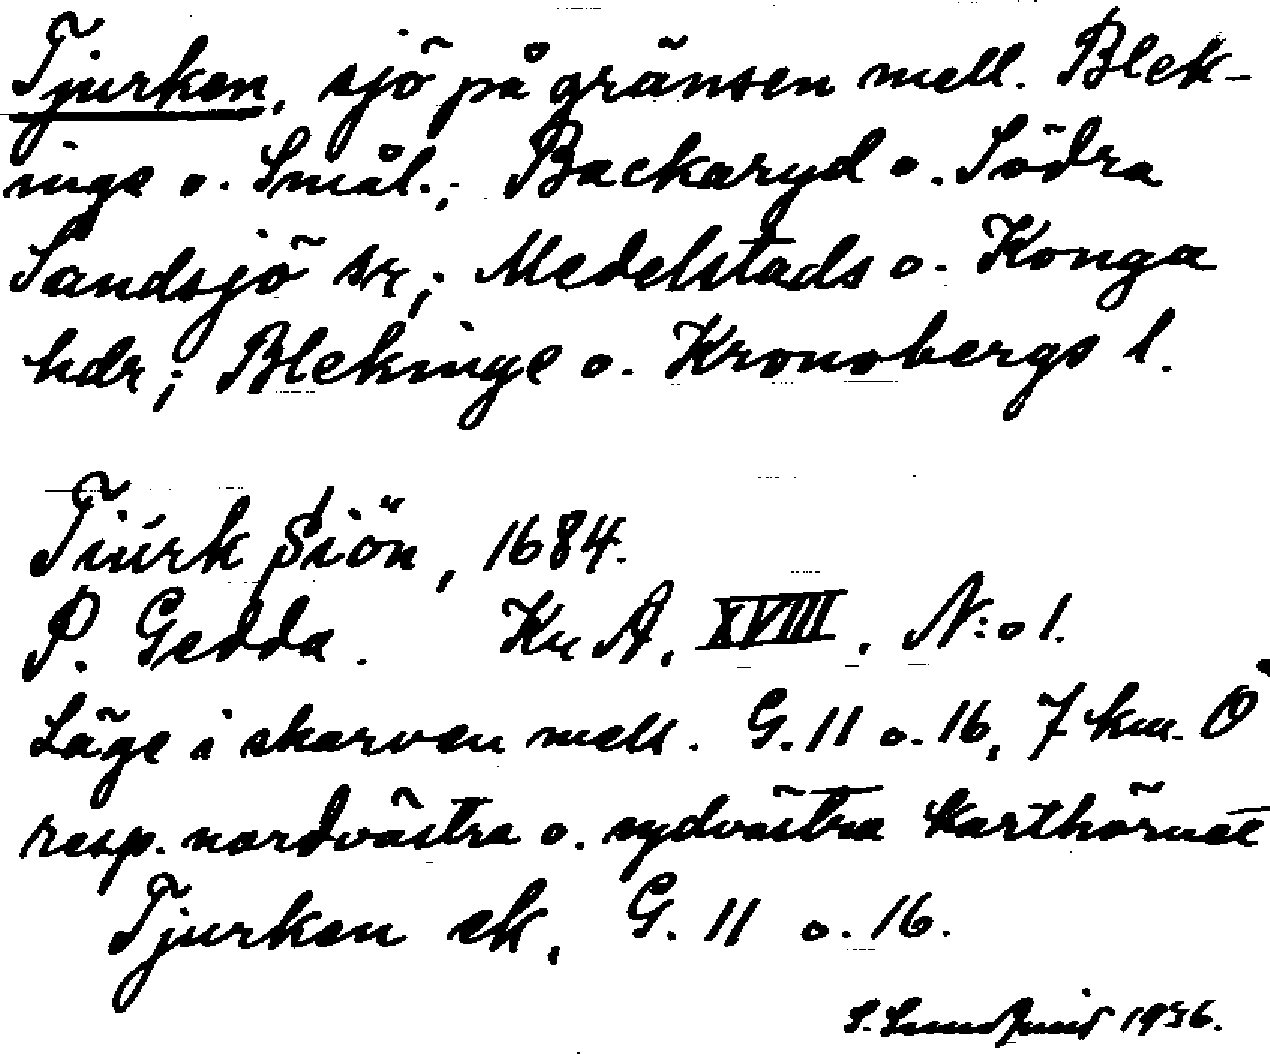 Tjurken, sjö på gränsen mell. Blek-
inge o. Smål.; Backaryd o. Södra
Sandsjö snr; Medelstads o. Konga
hdr; Blekinge o. Kronobergs l.
Tiurk Siön, 1684.
P. Gedda. Kr A, XVIII, N:o 1.
Läge i skarven mell. G. 11 o. 16, 7 km. O
resp. nordvästra o. sydvästra karthörnet
Tjurken ek, G. 11 o. 16.
S. 1936.